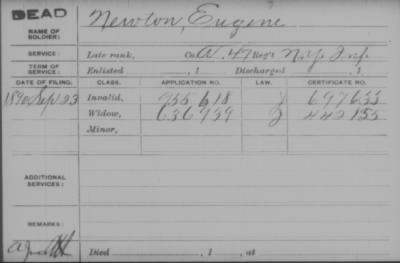 DEAD
NAME OF SOLDIER: Newton, Eugene
SERVICE: Late rank, Co. A, 47 Reg't N.Y. Inf.
TERM OF SERVICE: Enlisted , 1 Discharged , 1
DATE OF FILING. CLASS. APPLICATION NO. LAW. CERTIFICATE NO.
1890 Sep 23 Invalid, 955618 J 697633
Widow, 636939 J 442155
Minor,
ADDITIONAL SERVICES:
REMARKS:
Died , 1 , at